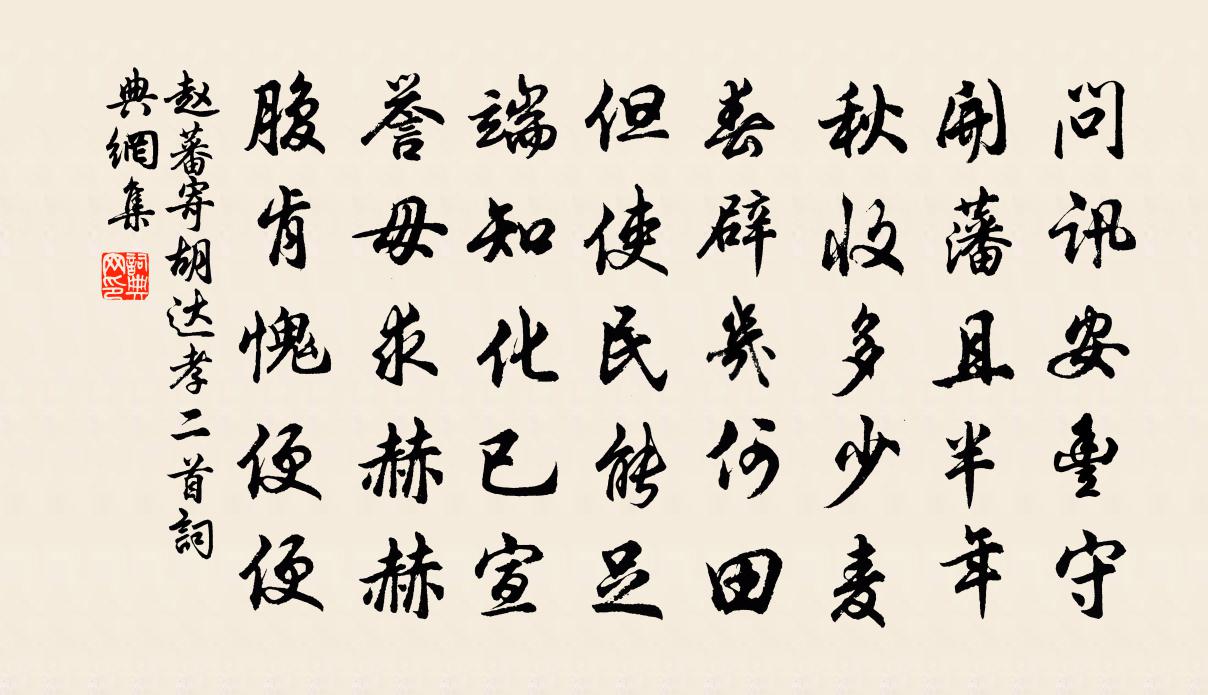 問訊安豊守
開藩且半年
秋收多少麦
春辟幾何田
但使民能足
端知化已宣
誉毋求赫赫
腹肯愧便便
赵蕃寄胡达孝二首詞
典網集
詞典
网印